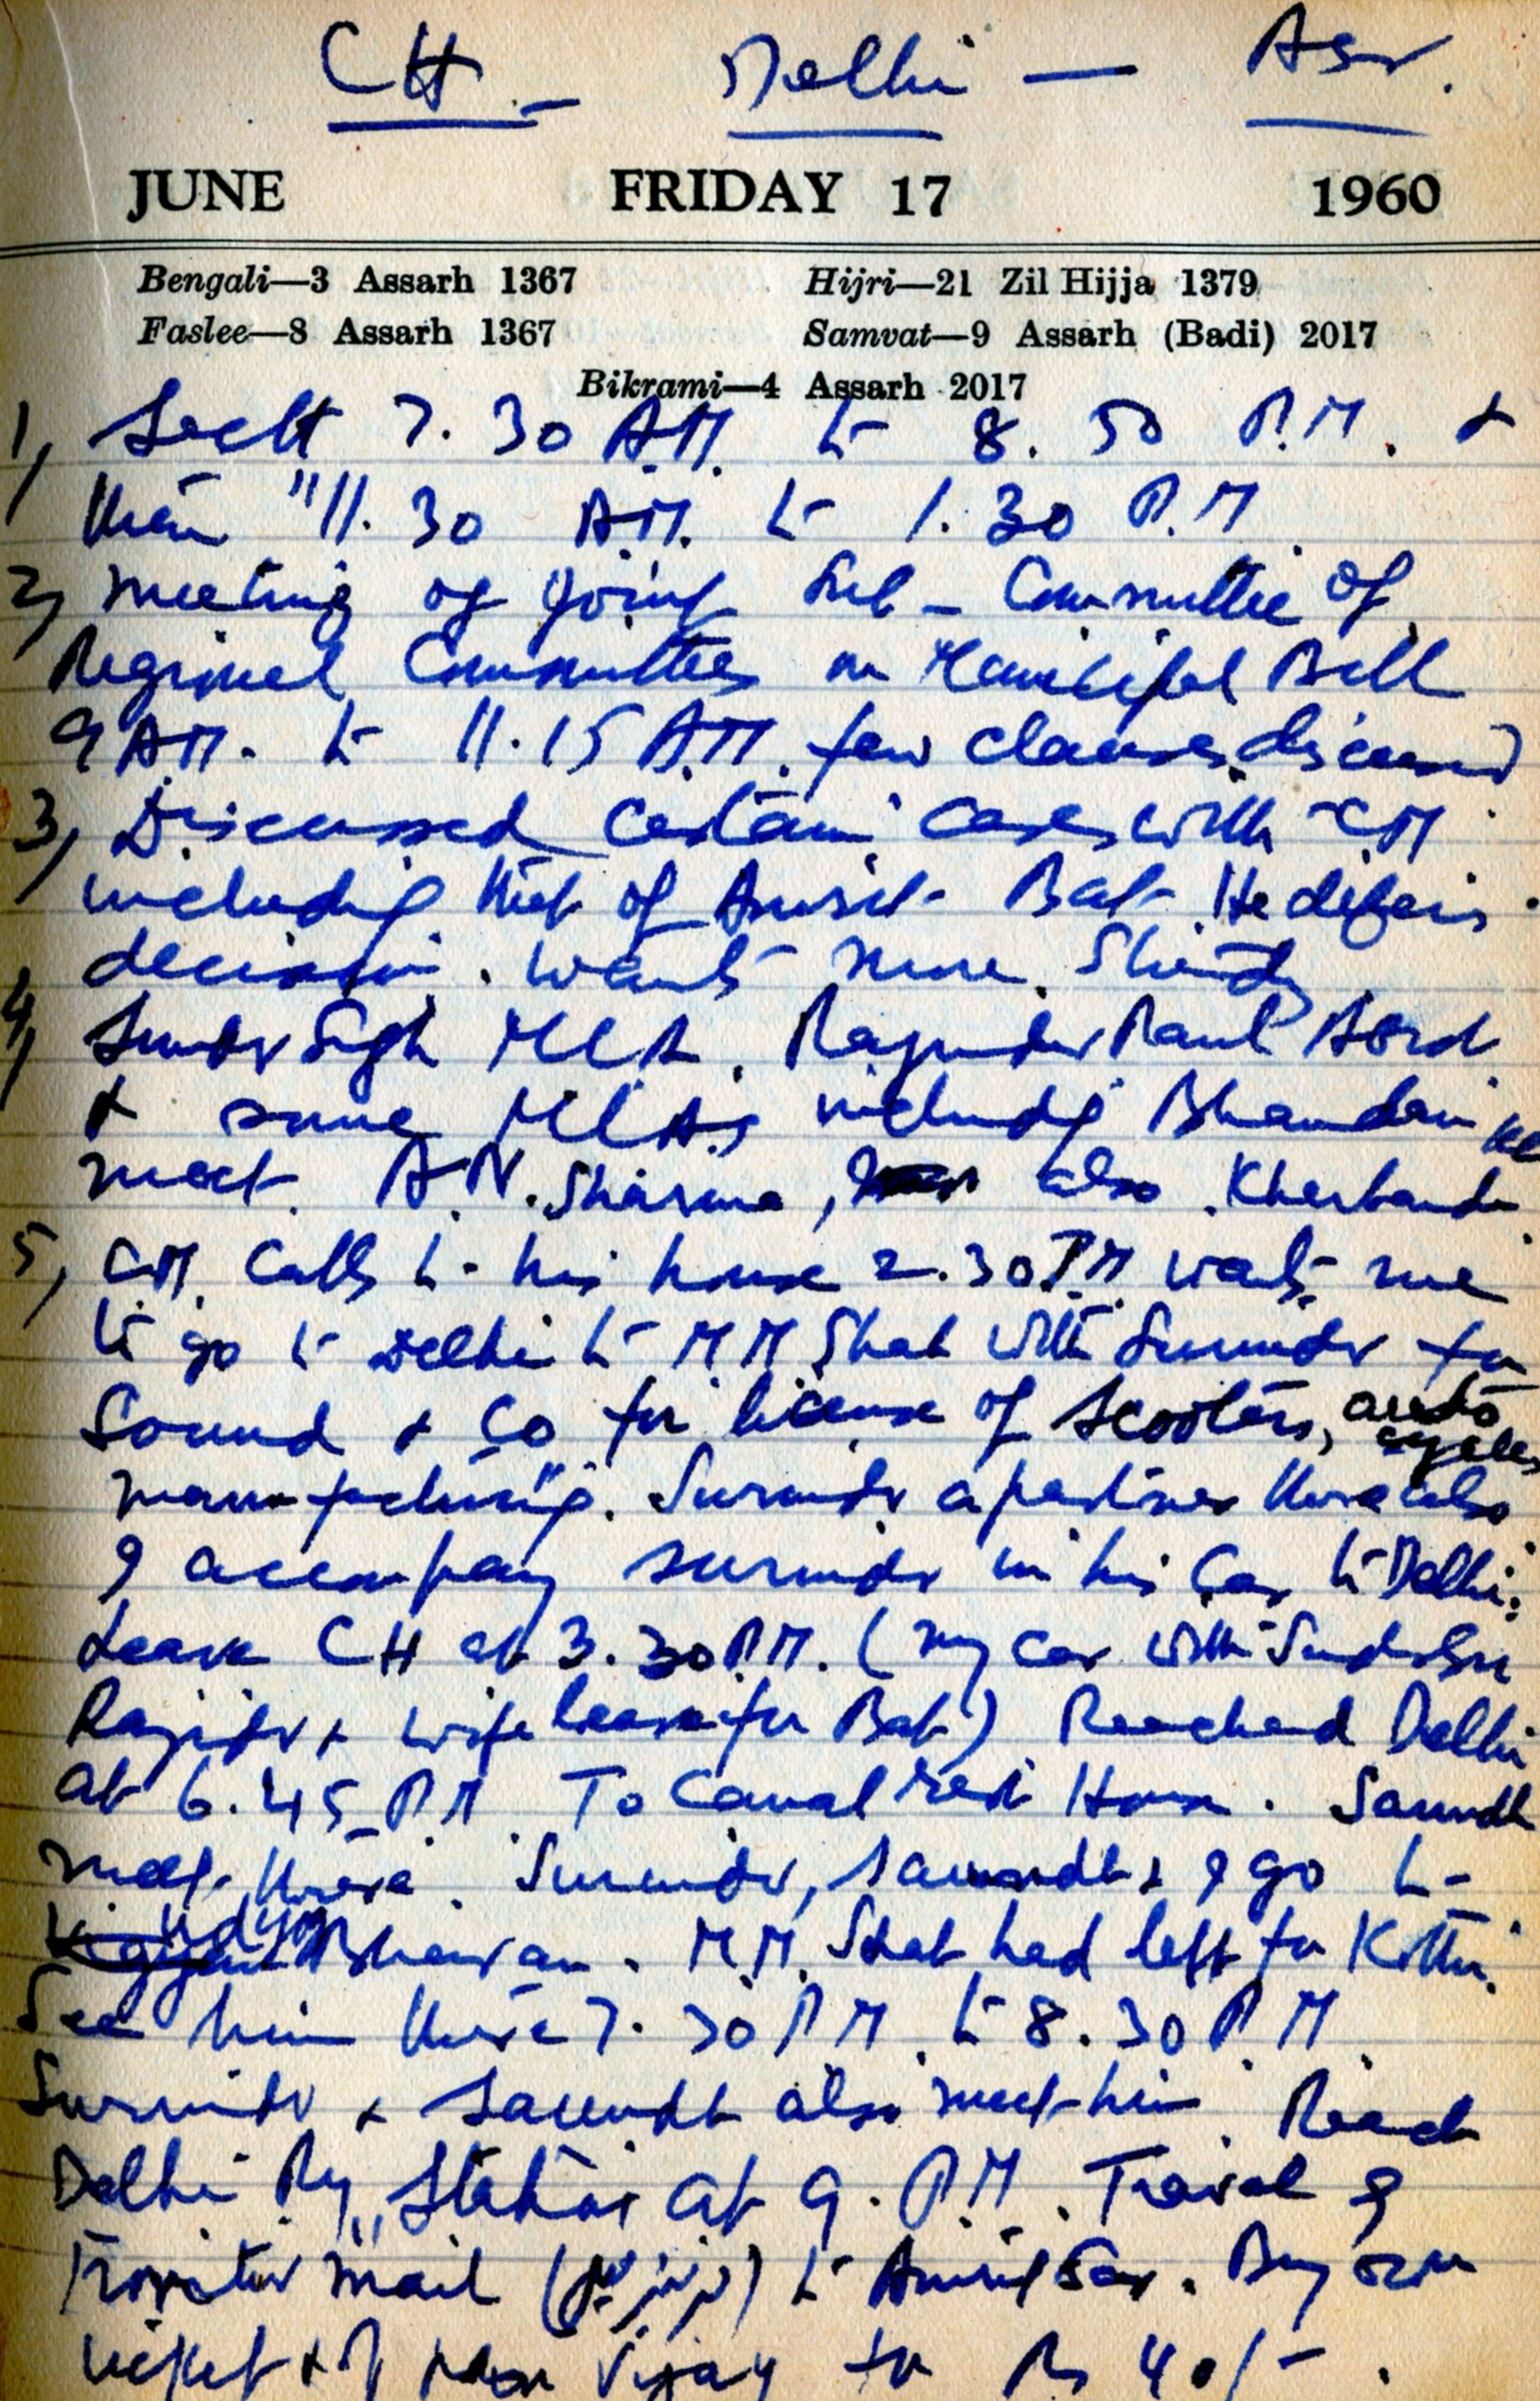 CH. — Delhi — Asr.
JUNE FRIDAY 17 1960
Bengali—3 Assarh 1367 Hijri—21 Zil Hijja 1379
Faslee—8 Assarh 1367 Samvat—9 Assarh (Badi) 2017
Bikrami—4 Assarh 2017
1, Sectt 7.30 A.M. to 8.50 P.M. &
then 11.30 A.M. to 1.30 P.M.
2, Meeting of Joint Sub-Committee of
Regional Committees on Municipal Bill
9 A.M. to 11.15 A.M. few clauses discussed
3, Discussed certain cases with CM
including that of Amrit Bat. He defers
decision. Wants more study
4, Sunder Singh MLA. Rajinder Paul
& some MLAs including Bhandari
meet. A.N. Sharma, also. Kherbanda
5, CM calls to his house 2.30 PM wants me
to go to Delhi to M M Shah with Surinder for
& Co for license of scooters, auto cycles
manufacturing. Surinder a partner there also
I accompany Surinder in his Car to Delhi.
Leave CH at 3.30 P.M. (my car with
Rajinder & wife leave for Bat) Reached Delhi
at 6.45 P.M. To Canal Rest House. Saundh
meet there. Surinder, Saundh & I go to
Udyog Bhawan. M.M. Shah had left for Kothi.
See him there 7.30 P M. to 8.30 P M.
Surinder & Saundh also meet him. Reach
Delhi Ry Station at 9. P.M. Travel by
Frontier Mail to AmritSar. Buy own
ticket & of Vijay for Rs 40/-.